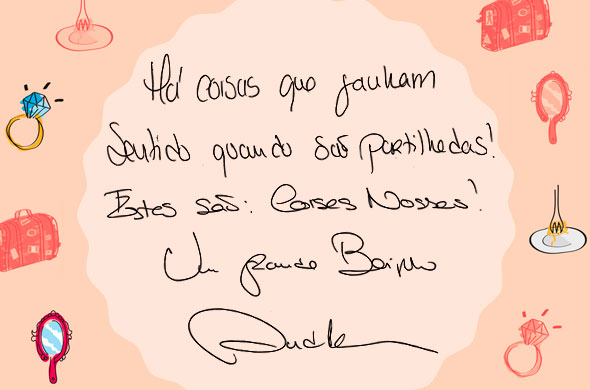 Há coisas que ganham
Sentido quando são partilhadas!
Estas são: Coisas Nossas!
Um grande Beijinho